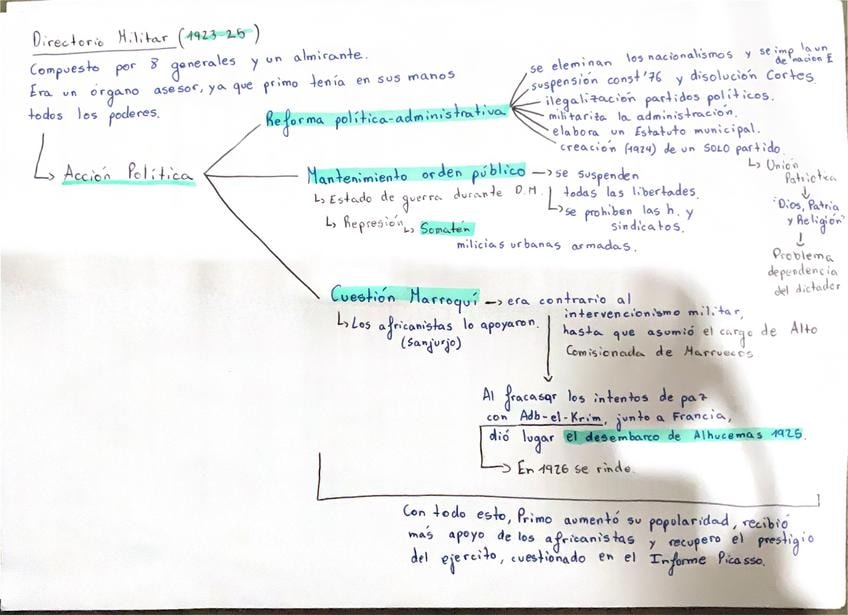 Directorio Militar (1923-25)
Compuesto por 8 generales y un almirante.
Era un órgano asesor, ya que primo tenía en sus manos
todos los poderes.
↳ Acción Política
Reforma política-administrativa
se eleminan los nacionalismos y se imp la un
de nación E
suspensión const '76 y disolución Cortes
ilegalización partidos políticos.
militariza la administración.
elabora un Estatuto municipal.
creación (1924) de un SOLO partido.
↳ Unión
Patriotica
↓
"Dios, Patria
y Religión"
↓
Problema
dependencia
del dictador
Mantenimiento orden público → se suspenden
todas las libertades.
↳ se prohiben las h. y
sindicatos.
↳ Estado de guerra durante D.M.
↳ Represión ↳ Somatén
milicias urbanas armadas.
Cuestión Marroquí → era contrario al
intervencionismo militar,
hasta que asumió el cargo de Alto
Comisionada de Marruecos
↳ Los africanistas lo apoyaron.
(Sanjurjo)
Al fracasar los intentos de paz
con Adb-el-Krim, junto a Francia,
dió lugar el desembarco de Alhucemas 1925.
→ En 1926 se rinde.
Con todo esto, Primo aumentó su popularidad, recibió
más apoyo de los africanistas y recupero el prestigio
del ejercito, cuestionado en el Informe Picasso.